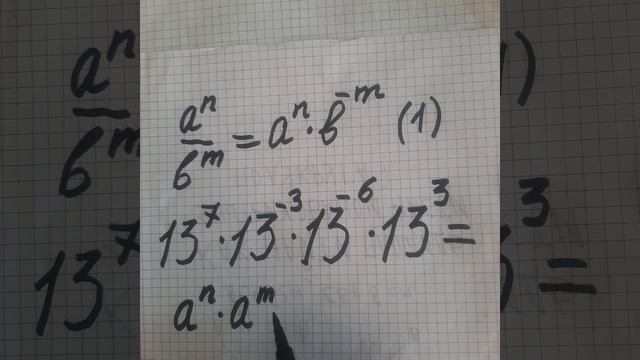 aⁿ/bᵐ = aⁿ · b⁻ᵐ (1)
13⁷ · 13⁻³ · 13⁻⁶ · 13³ =
aⁿ · aᵐ